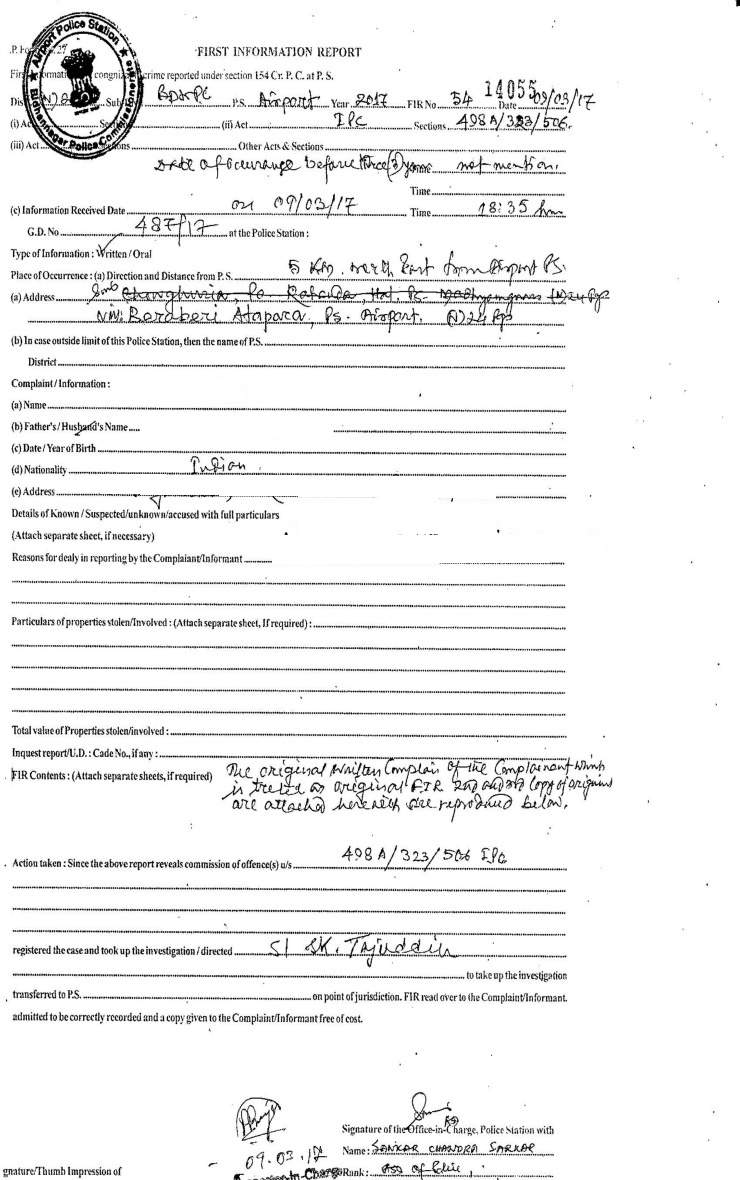 Airport Police Station
Bidhannagar Police Commissionerate
.P. Fo 27
FIRST INFORMATION REPORT
First Informati cogniz crime reported under section 154 Cr. P. C. at P. S.
14055
Dis (N) 2 Sub BDNPC P.S. Airport Year 2017 FIR No 54 Date 09/03/17
(i) Ac Sec (ii) Act IPC Sections 498A/323/506.
(iii) Act Sections Other Acts & Sections
Date of occurance before three (3) years not mention.
Time
(c) Information Received Date on 09/03/17 Time 18:35 hrs
G.D. No 487/17 at the Police Station :
Type of Information : Written / Oral
Place of Occurrence : (a) Direction and Distance from P. S. 5 KM. north East from Airport PS.
(a) Address (N) 24 Pgs
Vill: Berdberi Atapara, Ps- Airport, (N) 24 Pgs
(b) In case outside limit of this Police Station, then the name of P.S.
District
Complaint / Information :
(a) Name
(b) Father's / Husband's Name
(c) Date / Year of Birth
(d) Nationality Indian
(e) Address
Details of Known / Suspected/unknown/accused with full particulars
(Attach separate sheet, if necessary)
Reasons for dealy in reporting by the Complaiant/Informant
Particulars of properties stolen/Involved : (Attach separate sheet, If required) :
Total value of Properties stolen/involved :
Inquest report/U.D. : Code No., if any :
FIR Contents : (Attach separate sheets, if required) The original written Complain of the Complainant which
is treted as original FIR 2nd and 3rd Copy of origin
are attached herewith are reproduced below.
Action taken : Since the above report reveals commission of offence(s) u/s 498A/323/506 IPC
registered the case and took up the investigation / directed SI SK. Tajuddin
to take up the investigation
transferred to P.S. on point of jurisdiction. FIR read over to the Complaint/Informant.
admitted to be correctly recorded and a copy given to the Complaint/Informant free of cost.
Signature of the Office-in-Charge, Police Station with
09.03.17 Name : SANKAR CHANDRA SARKAR
gnature/Thumb Impression of In-Charge Rank :